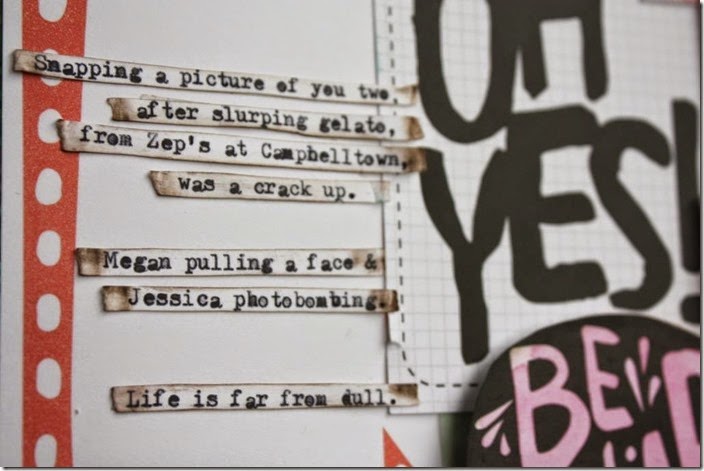 Snapping a picture of you two,
after slurping gelato,
from Zep's at Campbelltown,
was a crack up.
Megan pulling a face &
Jessica photobombing.
Life is far from dull.
OH
YES!
BE